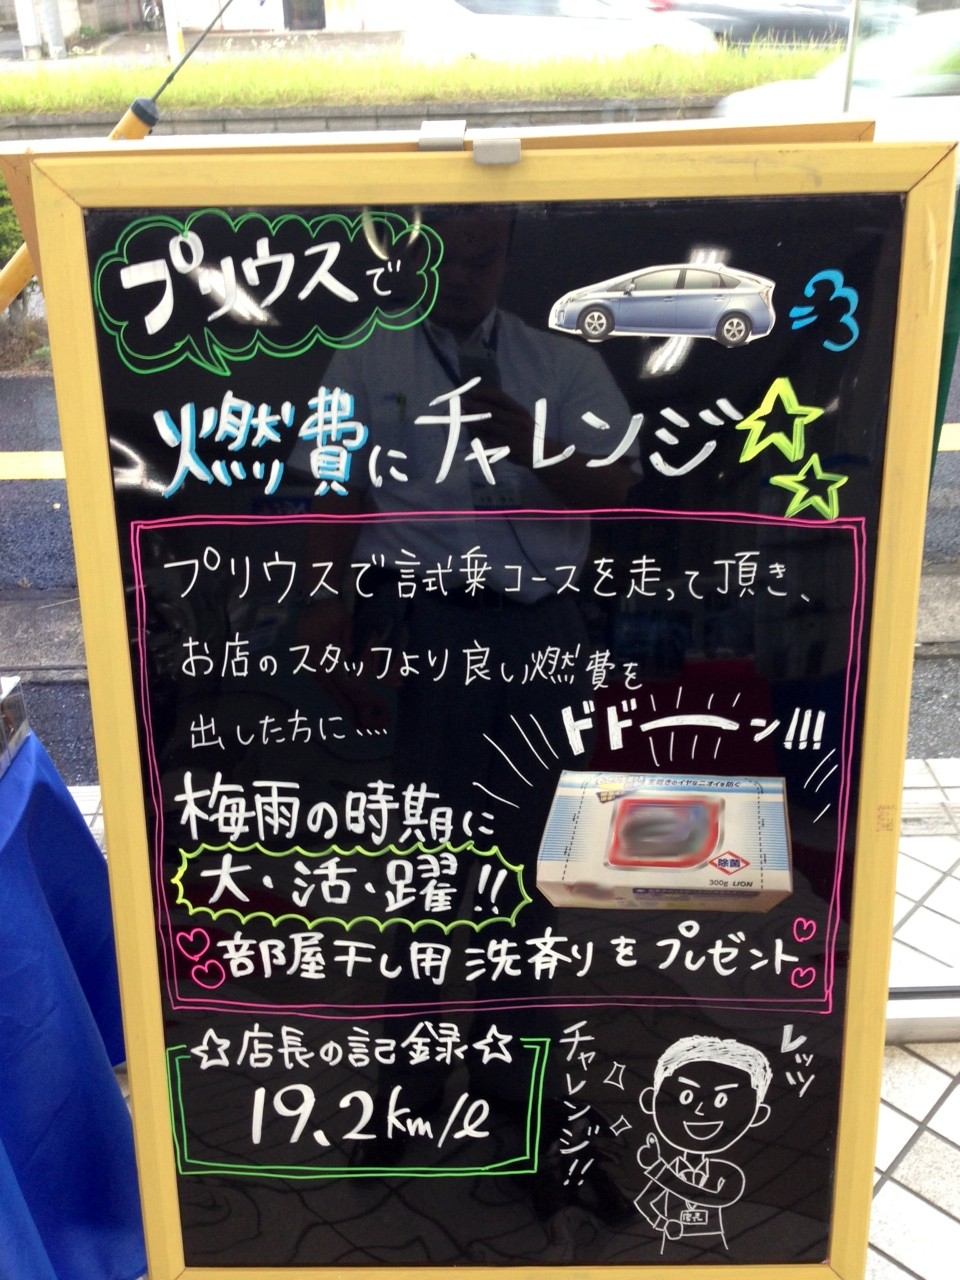 プリウスで
燃費にチャレンジ☆☆
プリウスで試乗コースを走って頂き、
お店のスタッフより良い燃費を
出した方に…
ドドーン!!!
梅雨の時期に
大・活・躍!!
除菌
300g LION
部屋干し用洗剤りをプレゼント
☆店長の記録☆
19.2km/ℓ
レッツ
チャレンジ!!
店長